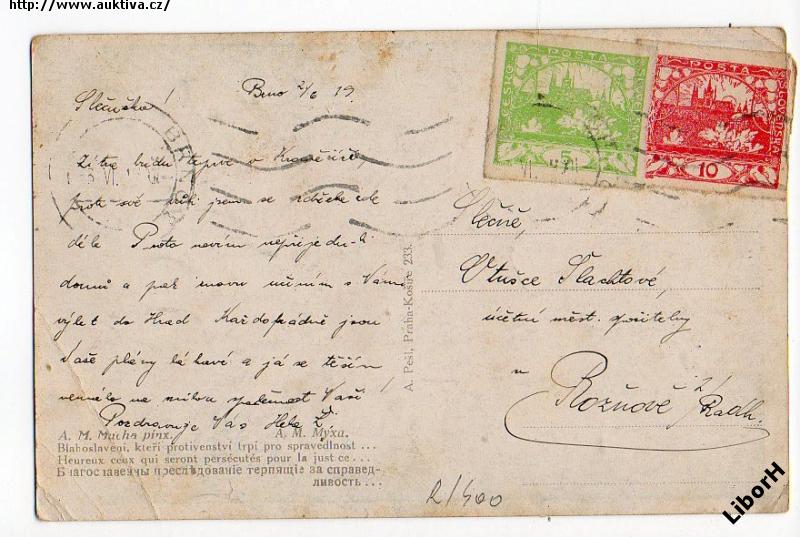 http://www.auktiva.cz/
Slečinko!
Brno 2/6 19.
Zítra budu teprve v Kroměříži,
proto své jsem se zde
déle Proto nevím nepřijedu-li
domů a pak znovu učiním s Vámi
výlet do Hrad Každopádně jsou
Vaše plány lákavé a já se těším
na milou společnost Vaši
Pozdravuje Vás Hela Ž.
A. M. Mucha pinx. А. М. Муха.
Blahoslavení, kteří protivenství trpí pro spravedlnost ...
Heureux ceux qui seront persécutés pour la just ce ...
Благославенны преслѣдованіе терпящіе за справед-
ливость ...
A. Pešl, Praha-Košíře 233.
POŠTA
ČESKO
SLOVENSKÁ
5
POŠTA
ČESKO-SLOVENSKÁ
10
BRNO
VI.
Slečně,
Otušce Šlachtové,
účetní měst. spořitelny
v
Rožnově /Radh.
R/400
LiborH